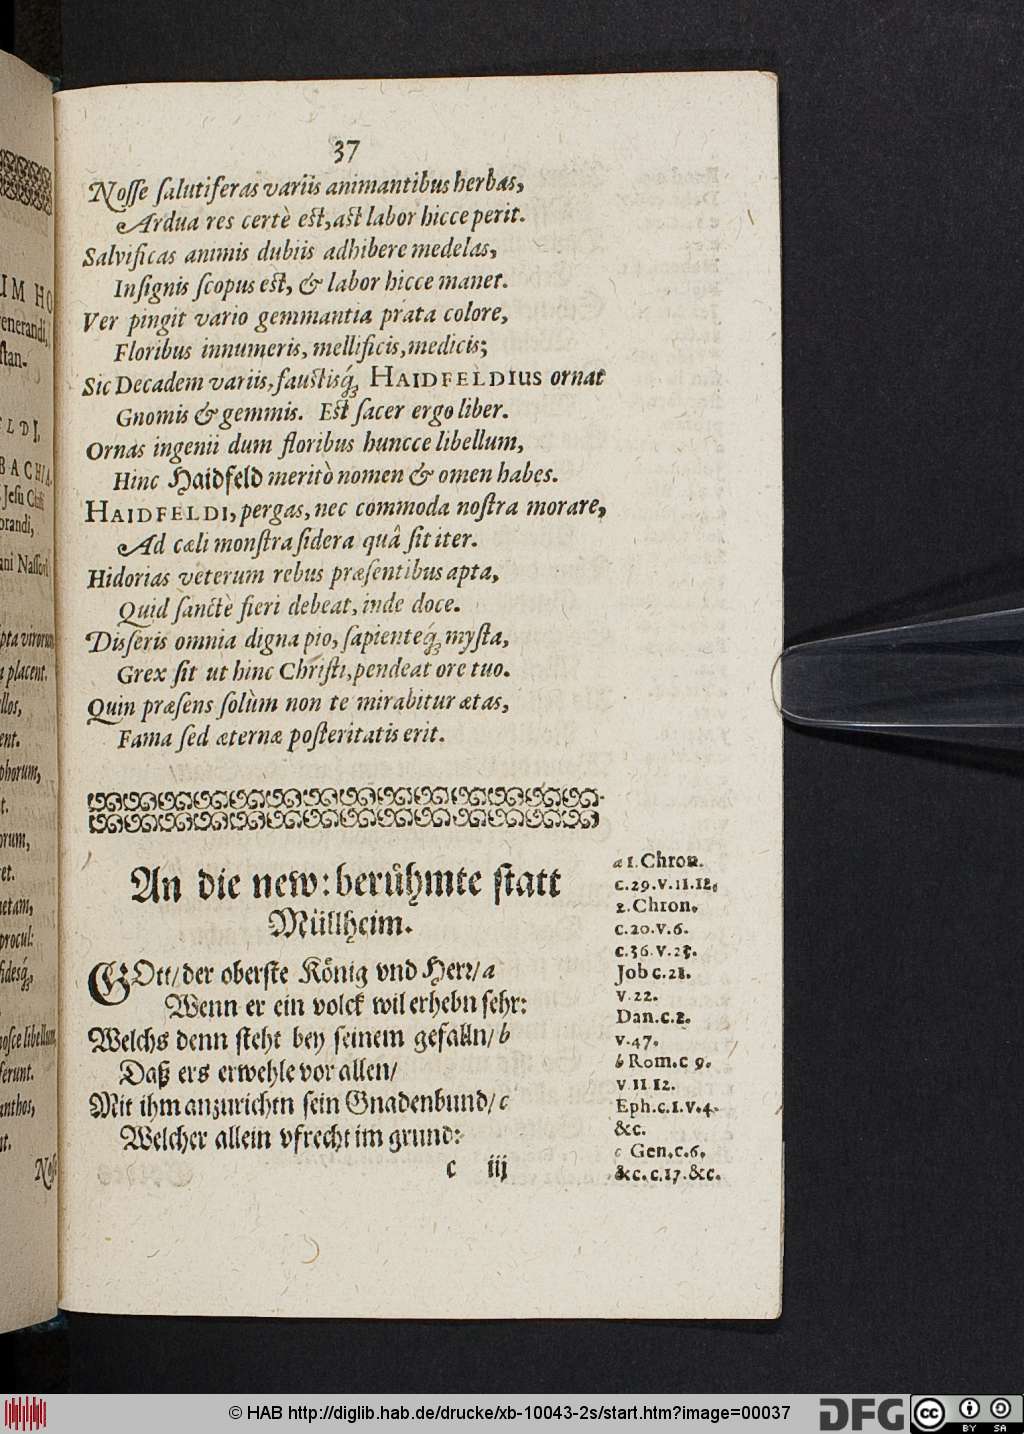 37
Nosse salutiferas variis animantibus herbas,
Ardua res certè est, ast labor hicce perit.
Salvificas animis dubiis adhibere medelas,
Insignis scopus est, & labor hicce manet.
Ver pingit vario gemmantia prata colore,
Floribus innumeris, mellificis, medicis;
Sic Decadem variis, faustisq́; HAIDFELDIUS ornat
Gnomis & gemmis. Est sacer ergo liber.
Ornas ingenii dum floribus huncce libellum,
Hinc Haidfeld meritò nomen & omen habes.
HAIDFELDI, pergas, nec commoda nostra morare,
Ad cæli monstra sidera quâ sit iter.
Hidorias veterum rebus præsentibus apta,
Quid sanctè fieri debeat, inde doce.
Disseris omnia digna pio, sapienteq́; mysta,
Grex sit ut hinc Christi, pendeat ore tuo.
Quin præsens solùm non te mirabitur ætas,
Fama sed æternæ posteritatis erit.
An die new: berühmte statt
Müllheim.
GOtt/ der oberste König vnd Herr/ a
Wenn er ein volck wil erhebn sehr:
Welchs denn steht bey seinem gefalln/ b
Daß ers erwehle vor allen/
Mit ihm anzurichtn sein Gnadenbund/ c
Welcher allein vfrecht im grund:
c iij
a 1. Chron.
c.29.v.11.12.
2. Chron.
c.20.v.6.
c.36.v.23.
Job c.21.
v.22.
Dan.c.2.
v.47.
b Rom.c 9.
v 11 12.
Eph.c.1.v.4.
&c.
c Gen.c.6.
&c.c.17.&c.
© HAB http://diglib.hab.de/drucke/xb-10043-2s/start.htm?image=00037
DFG
cc
BY SA